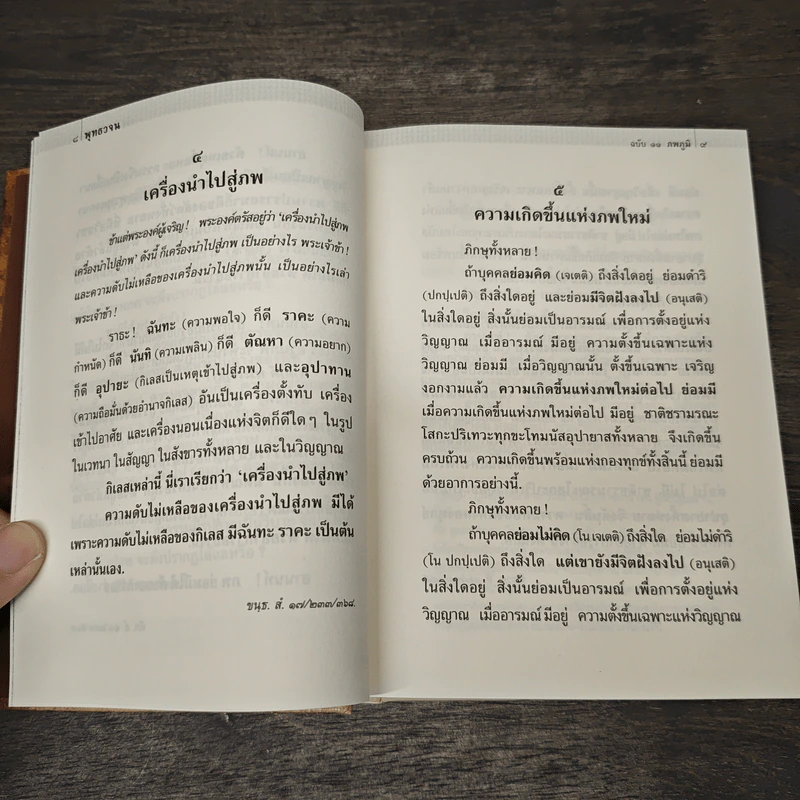 ๘ | พุทธวจน
๔
เครื่องนำไปสู่ภพ
ข้าแต่พระองค์ผู้เจริญ ! พระองค์ตรัสอยู่ว่า ‘เครื่องนำไปสู่ภพ
เครื่องนำไปสู่ภพ’ ดังนี้ ก็เครื่องนำไปสู่ภพ เป็นอย่างไร พระเจ้าข้า !
และความดับไม่เหลือของเครื่องนำไปสู่ภพนั้น เป็นอย่างไรเล่า
พระเจ้าข้า !
ราธะ ! ฉันทะ (ความพอใจ) ก็ดี ราคะ (ความ
กำหนัด) ก็ดี นันทิ (ความเพลิน) ก็ดี ตัณหา (ความอยาก)
ก็ดี อุปายะ (กิเลสเป็นเหตุเข้าไปสู่ภพ) และอุปาทาน
(ความถือมั่นด้วยอำนาจกิเลส) อันเป็นเครื่องตั้งทับ เครื่อง
เข้าไปอาศัย และเครื่องนอนเนื่องแห่งจิตก็ดีใด ๆ ในรูป
ในเวทนา ในสัญญา ในสังขารทั้งหลาย และในวิญญาณ
กิเลสเหล่านี้ นี่เราเรียกว่า ‘เครื่องนำไปสู่ภพ’
ความดับไม่เหลือของเครื่องนำไปสู่ภพ มีได้
เพราะความดับไม่เหลือของกิเลส มีฉันทะ ราคะ เป็นต้น
เหล่านั้นเอง.
ขนฺธ. สํ. ๑๗/๒๓๓/๓๖๘.
ฉบับ ๑๑ ภพภูมิ | ๙
๕
ความเกิดขึ้นแห่งภพใหม่
ภิกษุทั้งหลาย !
ถ้าบุคคลย่อมคิด (เจเตติ) ถึงสิ่งใดอยู่ ย่อมดำริ
(ปกปฺเปติ) ถึงสิ่งใดอยู่ และย่อมมีจิตฝังลงไป (อนุเสติ)
ในสิ่งใดอยู่ สิ่งนั้นย่อมเป็นอารมณ์ เพื่อการตั้งอยู่แห่ง
วิญญาณ เมื่ออารมณ์ มีอยู่ ความตั้งขึ้นเฉพาะแห่ง
วิญญาณ ย่อมมี เมื่อวิญญาณนั้น ตั้งขึ้นเฉพาะ เจริญ
งอกงามแล้ว ความเกิดขึ้นแห่งภพใหม่ต่อไป ย่อมมี
เมื่อความเกิดขึ้นแห่งภพใหม่ต่อไป มีอยู่ ชาติชรามรณะ
โสกะปริเทวะทุกขะโทมนัสอุปายาสทั้งหลาย จึงเกิดขึ้น
ครบถ้วน ความเกิดขึ้นพร้อมแห่งกองทุกข์ทั้งสิ้นนี้ ย่อมมี
ด้วยอาการอย่างนี้.
ภิกษุทั้งหลาย !
ถ้าบุคคลย่อมไม่คิด (โน เจเตติ) ถึงสิ่งใด ย่อมไม่ดำริ
(โน ปกปฺเปติ) ถึงสิ่งใด แต่เขายังมีจิตฝังลงไป (อนุเสติ)
ในสิ่งใดอยู่ สิ่งนั้นย่อมเป็นอารมณ์ เพื่อการตั้งอยู่แห่ง
วิญญาณ เมื่ออารมณ์ มีอยู่ ความตั้งขึ้นเฉพาะแห่งวิญญาณ